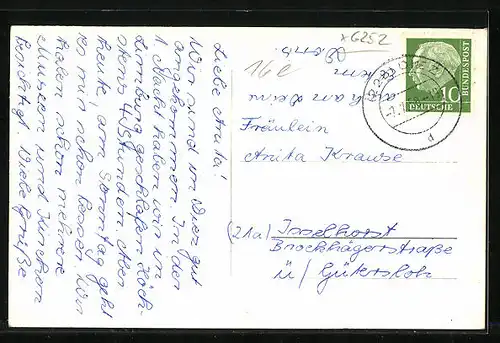 Liebe Anita!
Wir sind in Diez gut
angekommen. In der
1 Nacht haben wir in
Limburg geschlafen höch-
stens 4 Stunden. Aber
heute, am Sonntag geht
es mir schon besser. Wir
haben schon mehrere
Museen und Kirchen
besichtgt. Viele Grüße
x6252
16 e
10
DEUTSCHE
BUNDESPOST
Fräulein
Anita Krause
(21a) Isselhorst
Brockhägerstraße
ü/ Gütersloh